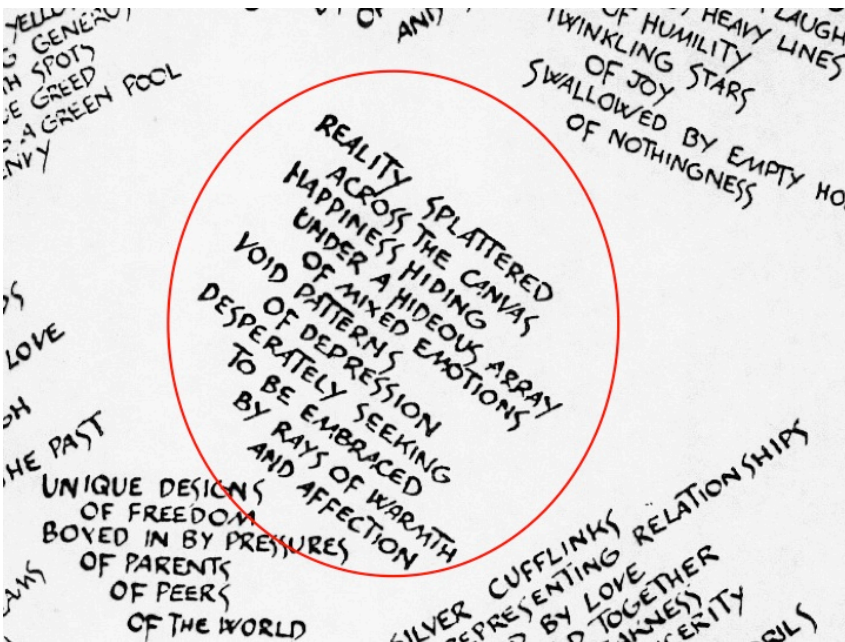 YELLOW
GENEROU
SPOTS
GREED
A GREEN POOL
ENVY
OF
AND
LAUGH
HEAVY LINES
OF HUMILITY
TWINKLING STARS
OF JOY
SWALLOWED BY EMPTY HO
OF NOTHINGNESS
REALITY SPLATTERED
ACROSS THE CANVAS
HAPPINESS HIDING
UNDER A HIDEOUS ARRAY
OF MIXED EMOTIONS
VOID PATTERNS
OF DEPRESSION
DESPERATELY SEEKING
TO BE EMBRACED
BY RAYS OF WARMTH
AND AFFECTION
LOVE
THE PAST
UNIQUE DESIGNS
OF FREEDOM
BOXED IN BY PRESSURES
OF PARENTS
OF PEERS
OF THE WORLD
SILVER CUFFLINKS
REPRESENTING RELATIONSHIPS
BY LOVE
TOGETHER